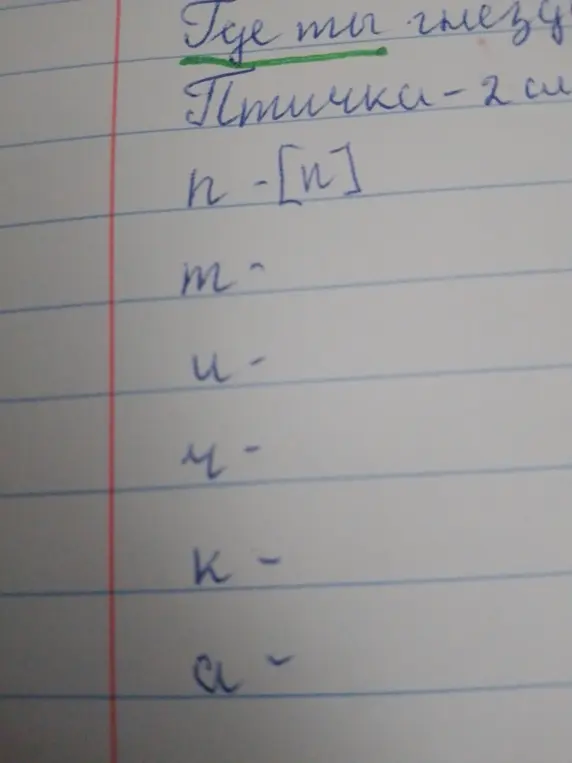 Где ты гнезд
Птичка - 2 сл
п - [п]
т -
и -
ч -
к -
а -